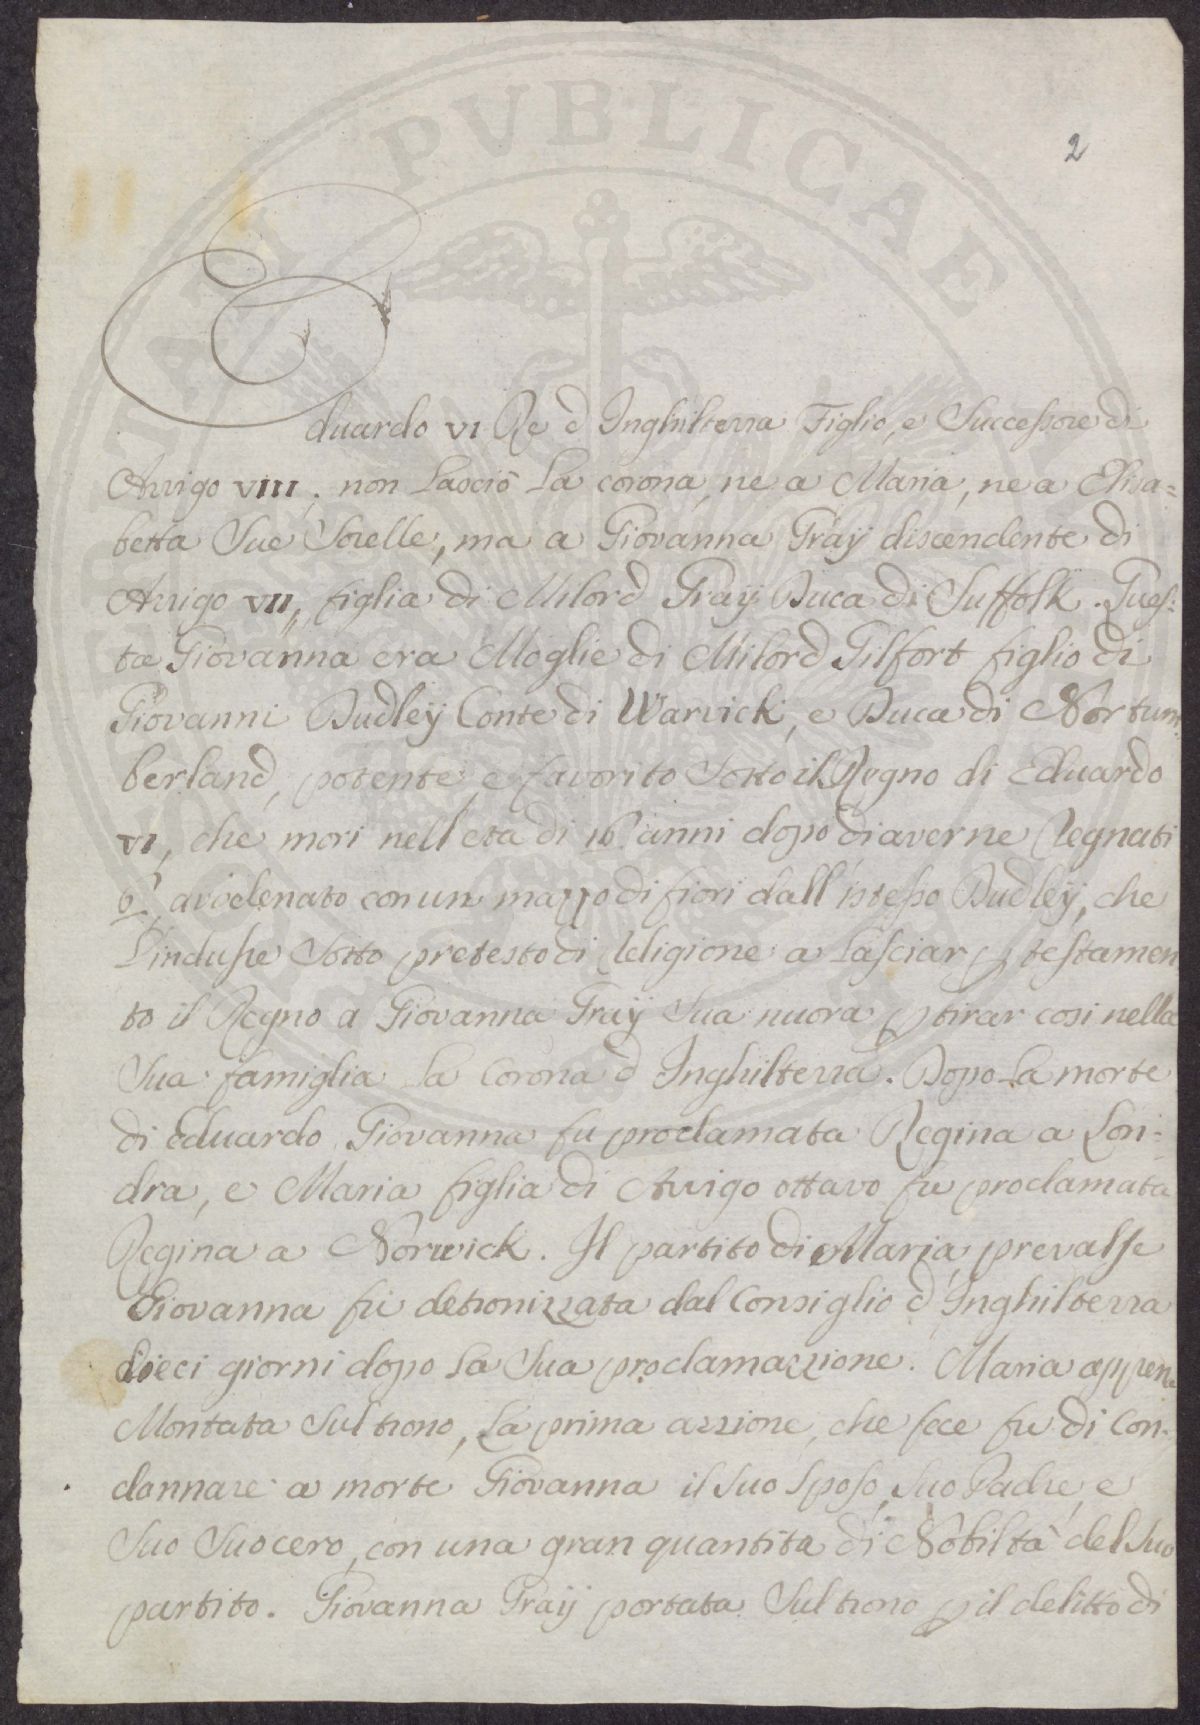 2
Eduardo VI Re d Inghilterra Figlio, e Successore di
Arrigo VIII, non lasciò la corona, ne a Maria, ne a Elisa=
betta Sue Sorelle, ma a Giovanna Gray discendente di
Arrigo VII, figlia di Milord Gray Duca di Suffolk. Ques=
ta Giovanna era Moglie di Milord Gilfort figlio di
Giovanni Dudley Conte di Warvick, e Duca di Nortum
berland, potente e favorito sotto il Regno di Eduardo
VI, che mori nell età di 16 anni dopo di averne Regnati
6, avvelenato con un mazzo di fiori dall istesso Dudley, che
l'indusse sotto pretesto di Religione a lasciar p testamen
to il Regno a Giovanna Gray Sua nuora p tirar cosi nella
Sua famiglia la Corona d Inghilterra. Dopo la morte
di Eduardo Giovanna fu proclamata Regina a Lon=
dra, e Maria figlia di Arrigo ottavo fu proclamata
Regina a Norwick. Il partito di Maria prevalse
Giovanna fù detronizzata dal Consiglio d Inghilterra
dieci giorni dopo la Sua proclamazzione. Maria appena
Montata sul trono, la prima azzione, che fece fu di Con=
dannare a morte Giovanna il suo sposo, suo Padre, e
Suo Suocero, con una gran quantita di Nobiltà del Suo
partito. Giovanna Gray portata sul trono p il delitto di
PUBLICAE